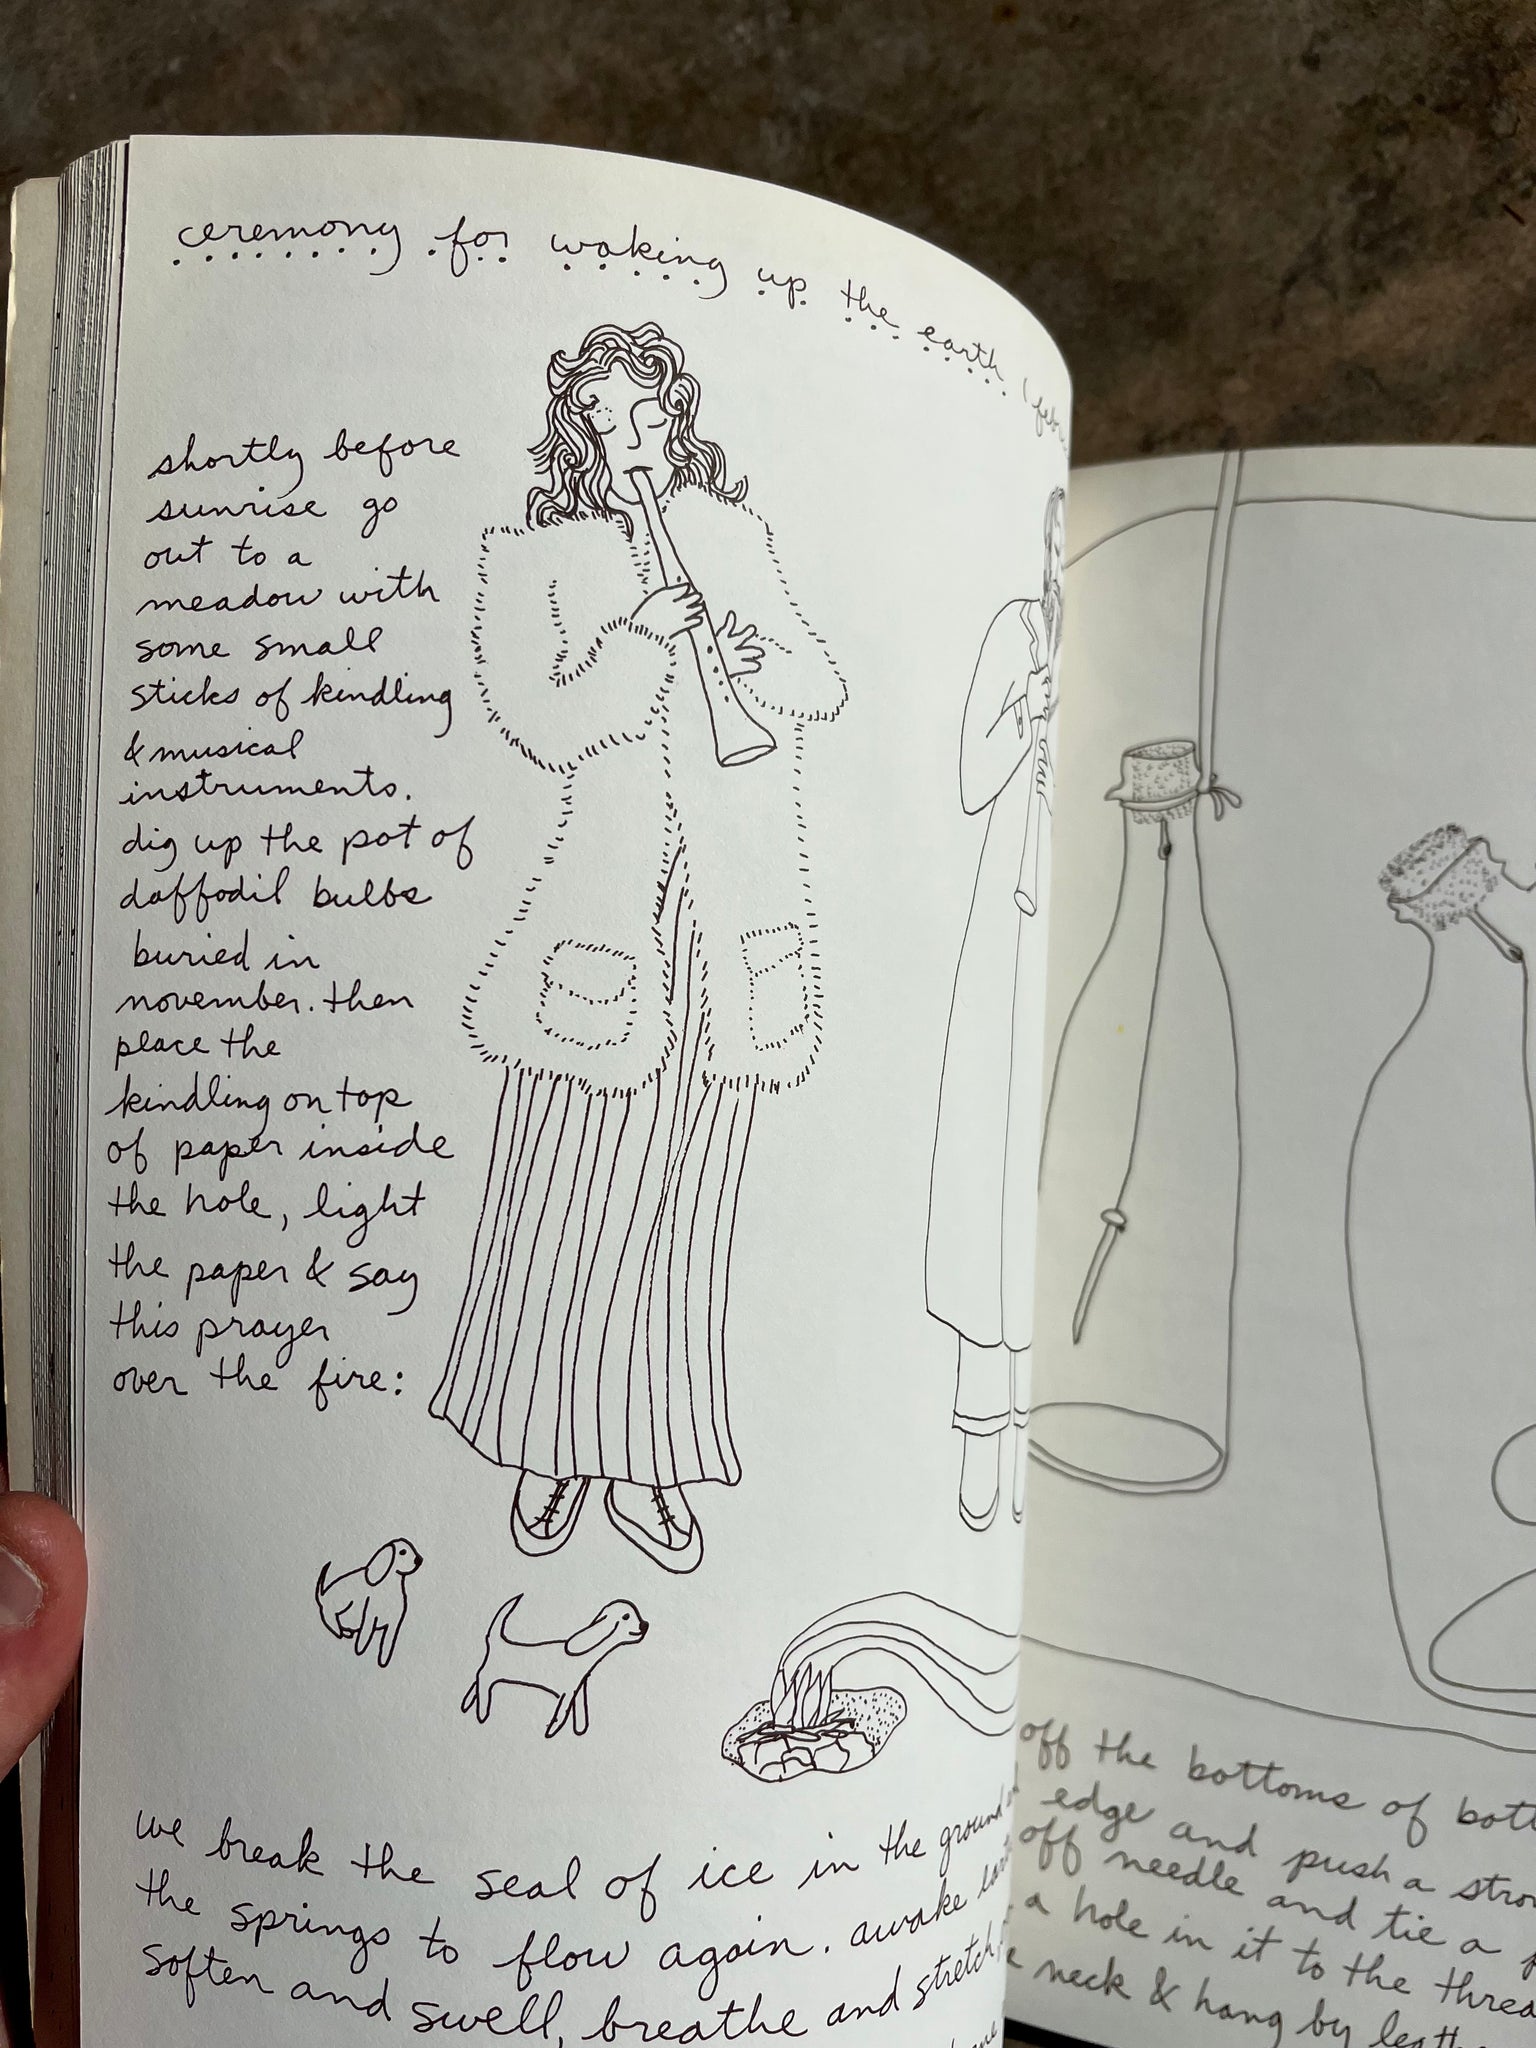 ceremony for waking up the earth
shortly before
sunrise go
out to a
meadow with
some small
sticks of kindling
& musical
instruments.
dig up the pot of
daffodil bulbs
buried in
november. then
place the
kindling on top
of paper inside
the hole, light
the paper & say
this prayer
over the fire:
we break the seal of ice in the ground
the springs to flow again. awake
soften and swell, breathe and stretch,
off the bottoms of
edge and push a
off needle and tie a
a hole in it to the
neck & hang by